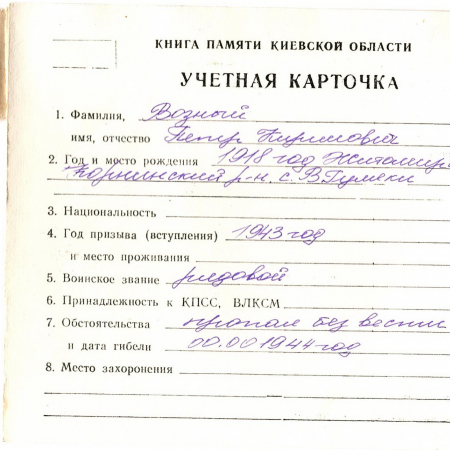 КНИГА ПАМЯТИ КИЕВСКОЙ ОБЛАСТИ
УЧЕТНАЯ КАРТОЧКА
1. Фамилия, Возный
имя, отчество Петр
2. Год и место рождения 1918 год Житомир.
Корнинский р-н. с. В. Гумяки
3. Национальность
4. Год призыва (вступления) 1943 год
и место проживания
5. Воинское звание рядовой
6. Принадлежность к КПСС, ВЛКСМ
7. Обстоятельства пропал без вести
и дата гибели 00.00 1944 год
8. Место захоронения